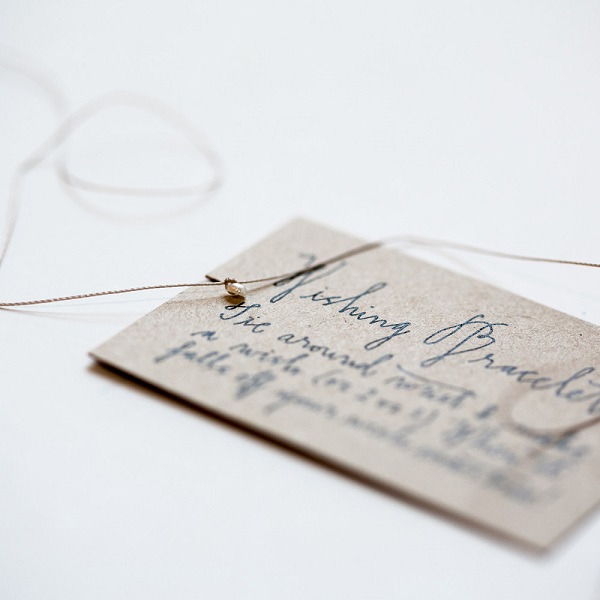 Wishing Bracelet
Tie around wrist &
a wish (or 2 or 3) When it
falls off your wish